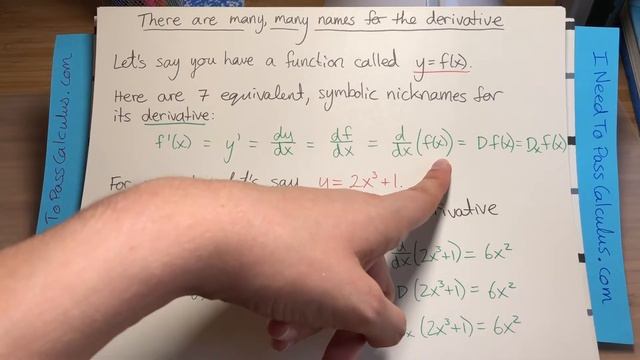 There are many, many names for the derivative
Let's say you have a function called y=f(x).
Here are 7 equivalent, symbolic nicknames for
its derivative:
f'(x) = y' = dy/dx = df/dx = d/dx (f(x)) = Df(x) = Dₓf(x)
For let's say y = 2x³+1.
derivative
d/dx (2x³+1) = 6x²
D (2x³+1) = 6x²
ₓ (2x³+1) = 6x²
To Pass Calculus.com
I Need To Pass Calculus.com